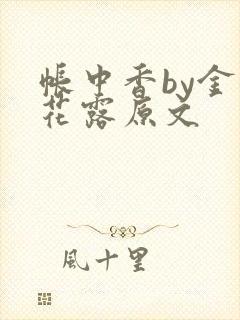 帳中香by金
花露原文
風十里